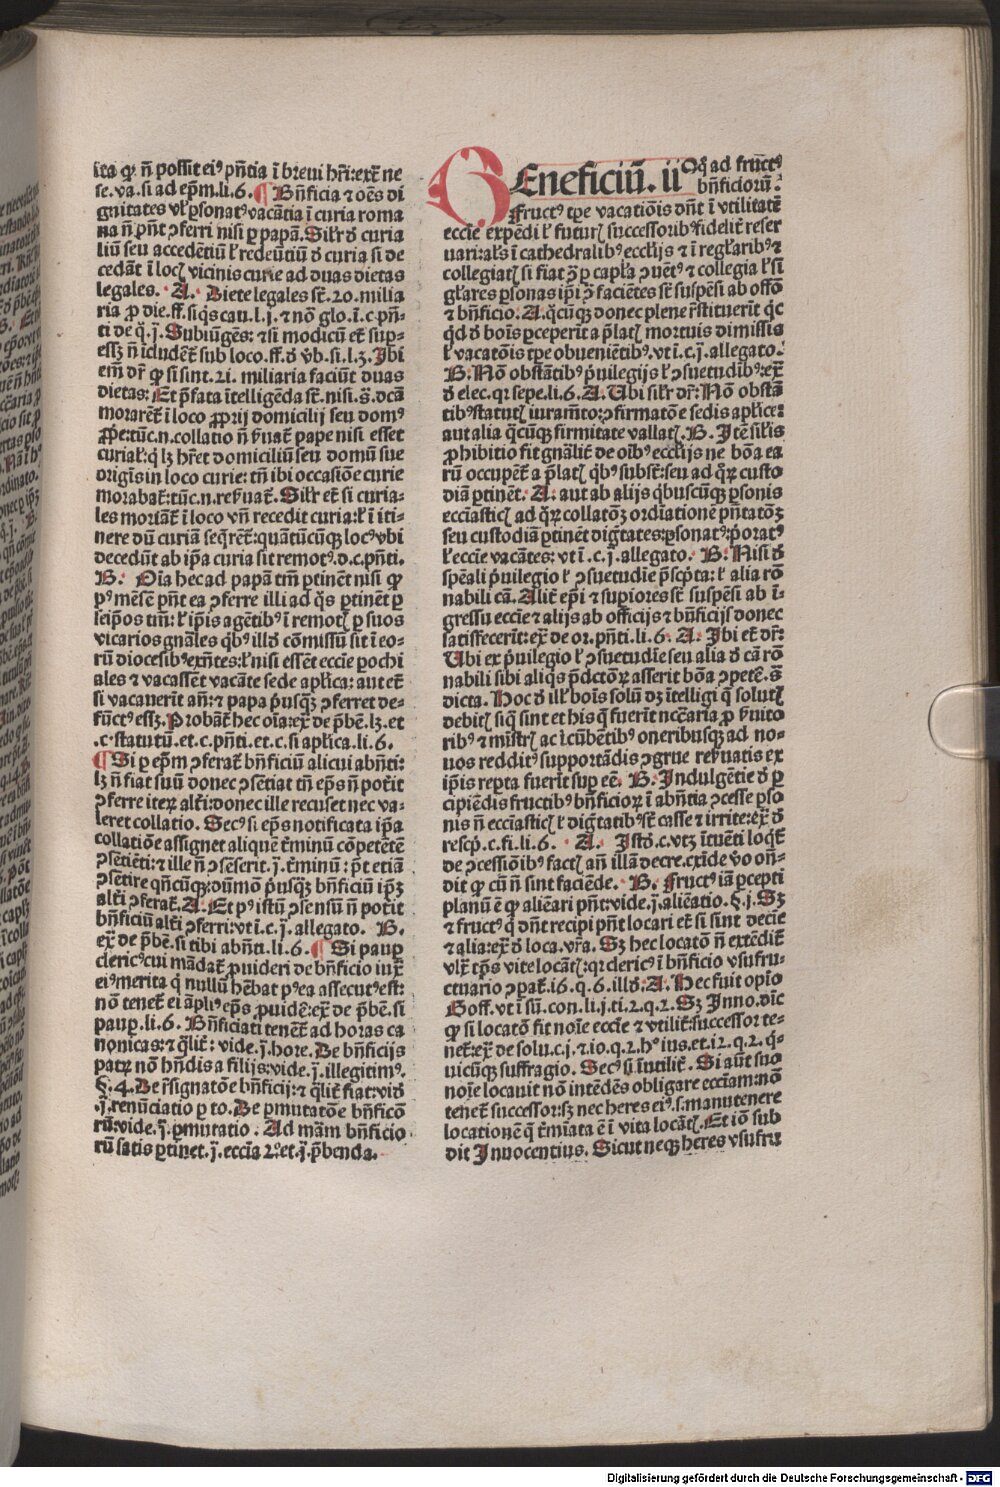 ita ꝙ n̄ possit ei⁹ p̄ntia ī breui hr̄i:exͣ ne
se.va.si ad ep̄m.li.6. ¶ Bn̄ficia ⁊ oēs di
gnitates vl̓ ꝑsonat⁹ vacātia ī curia roma
na n̄ p̄nt ↄferri nisi ꝑ papā. Silr̓ đ curia
liū seu accedētiū l̓ redeūtiū đ curia si de
cedāt ī locꝭ vicinis curie ad duas dietas
legales. A. Diete legales sūt .20. milia
ria ꝓ die.ff.si qͥs cau.l.j. ⁊ nō glo.ī.c.p̄n-
ti de q̄.j. Subiūges: ⁊ si modicū et̄ sup-
essꝫ n̄ īcludet̄ sub loco.ff.đ v̄b.si.l.3. Ibi
em̄ dr̄ ꝙ si sint .21. miliaria faciūt duas
dietas: Et p̄fata ītelligēda sūt.nisi.s̄.dcā
morarēt̄ ī loco ꝓprij domicilij seu dom⁹
ꝓpe:tūc.n.collatio n̄ ẜuat̄ pape nisi esset
curial̓:q̇ lꝫ hr̄et domiciliū seu domū sue
origīs in loco curie: tn̄ ibi occasiōe curie
morabat̄:tūc.n.reẜuat̄. Silr̓ et̄ si curia-
les moriāt̄ ī loco vn̄ recedit curia:l̓ ī iti-
nere dū curiā seq̄rēt̄:quātūcūqꝫ loc⁹ vbi
decedūt ab ip̄a curia sit remot⁹.đ.c.p̄nti.
B. Oīa hec ad papā tm̄ ꝑtinēt nisi ꝙ
p⁹ mēsē p̄nt ea ↄferre illi ad qͦs ꝑtinēt ꝑ
seip̄os tm̄: l̓ ip̄is agētib⁹ ī remotꝭ ꝑ suos
vicarios gn̄ales qͥb⁹ illđ cōmissū sit ī eo-
rū diocesib⁹ exn̄tes:l̓ nisi essēt eccīe ꝑochi
ales ⁊ vacassēt vacāte sede apl̓ica: aut et̄
si vacauerīt an̄: ⁊ papa p̓usqꝫ ↄferret de-
fūct⁹ essꝫ. Probāt̄ hec oīa:exͣ de p̄bē.lꝫ.et
.c.statutū.et.c.p̄nti.et.c.si apl̓ica.li.6.
¶ Si ꝑ ep̄m ↄferat̄ bn̄ficiū alicui abn̄ti:
lꝫ n̄ fiat suū donec ↄsētiat tn̄ ep̄s n̄ pōt
ↄferre iteꝝ alt̓i:donec ille recuset nec va-
leret collatio. Sec⁹ si ep̄s notificata ip̄a
collatiōe assignet aliquē t̄minū cōpetētē
ↄsētiēti: ⁊ ille n̄ ↄsēserit.j̄.t̄minū: p̄t etiā
ↄsētire qn̄cūqꝫ:dūmō p̓usqꝫ bn̄ficiū ip̄ꝫ
alt̓i ↄferat̄. A. Et p⁹ istū ↄsensū n̄ pot̓it
bn̄ficiū alt̓i ↄferri:vt ī.c.j̄.allegato. B.
exͣ de p̄bē.si tibi abn̄ti.li.6. ¶ Si pauꝑ
cleric⁹ cui mādat̄ ꝓuideri de bn̄ficio iuxͣ
ei⁹ merita q̇ nullū hēbat p⁹ea assecut⁹ est:
nō tenet̄ ei āpli⁹ ep̄s ꝓuidē:exͣ de p̄bē.si
pauꝑ.li.6. Bn̄ficiati tenēt̄ ad horas ca
nonicas: ⁊ qͣlit̓: vide.j̄.hore. De bn̄ficijs
patꝝ nō hn̄dis a filijs:vide.j̄.illegitim⁹.
§.4. De r̄signatōe bn̄ficij: ⁊ qͣlit̓ fiat:viđ
.j̄.renūciatio ꝑ to. De ꝑmutatōe bn̄ficō
rū:vide.j̄.ꝑmutatio. Ad mām bn̄ficio
rū satis ꝑtinet.j̄.eccīa 2°.et.j̄.p̄benda.
Beneficiū. ii °q̊ ad fruct⁹
bn̄ficiorū.
Fruct⁹ tꝑe vacatiōis dn̄t ī vtilitatē
eccīe expēdi l̓ futurꝭ successorib⁹ fidelit̓ reser
uari:al̓s ī cathedralib⁹ eccl̓ijs ⁊ ī regl̓arib⁹ ⁊
collegiatꝭ si fiat ↄͣ ꝑ capl̓a ↄuēt⁹ ⁊ collegia l̓ si
gl̓ares ꝑsonas ip̄i ↄͣ faciētes sūt suspēsi ab offō
⁊ bn̄ficio. A. qͥcūqꝫ donec plene r̄stituerīt qͥc
qͥd đ boīs ꝑceperīt a p̄latꝭ mortuis dimissis
l̓ vacatōis tꝑe obueniētib⁹.vt ī.c.j̄.allegato.
B. Nō obstātib⁹ p̓uilegijs l̓ ↄsuetudīb⁹:exͣ
đ elec.qꝛ sepe.li.6. A. Vbi silr̓ dr̄: Nō obstā
tib⁹ statutꝭ iuram̄to:ↄfirmatōe sedis apl̓ice:
aut alia qͣcūqꝫ firmitate vallatꝭ. B. Itē sil̓is
ꝓhibitio fit gn̄alit̓ de oīb⁹ eccl̓ijs ne bōa ea
rū occupēt̄ a p̄latꝭ qͥb⁹ subsūt:seu ad qͦꝝ custo
diā ꝑtinēt. A. aut ab alijs qͥbuscūqꝫ ꝑsonis
eccīasticꝭ ad qͦꝝ collatōꝫ ordīationē p̄ntatōꝫ
seu custodiā ꝑtinēt dignitates:ꝑsonat⁹:p̓orat⁹
l̓ eccīe vacātes: vt ī.c.j̄.allegato. B. Nisi đ
spēali p̓uilegio l̓ ↄsuetudīe p̄scpͥta: l̓ alia rō
nabili cā. Alit̓ ep̄i ⁊ supiores sūt suspēsi ab ī-
gressu eccīe ⁊ alijs ab officijs ⁊ bn̄ficijs donec
satisfecerīt:exͣ de or.p̄nti.li.6. A. Ibi et̄ dr̄:
Vbi ex p̓uilegio l̓ ↄsuetudīe seu alia đ cā rō
nabili sibi aliqͥs p̄dctōꝝ asserit bōa ↄpetē.s̄
dicta. Hoc đ ill̓ boīs solū dꝫ ītelligi q̄ solutꝭ
debitꝭ siq̄ sint et his q̄ fuerīt nccāria ꝓ ẜuito
rib⁹ ⁊ mīstrꝭ ac īcūbētib⁹ oneribusqꝫ ad no-
uos reddit⁹ supportādis ↄgrue reẜuatis ex
ip̄is repta fuerīt supeē. B. Indulgētie đ ꝑ
cipiēdis fructib⁹ bn̄ficioꝝ ī abn̄tia ↄcesse ꝑso
nis n̄ eccīasticꝭ l̓ digtatib⁹ sūt casse ⁊ irrite:exͣ đ
rescp.c.fi.li.6. A. Istđ.c.vtꝫ ītuēti loqͥt̄
de ↄcessiōib⁹ factꝭ an̄ illā decre.exīde v̓o on̄-
dit ꝙ cū n̄ sint faciēde. B. Fruct⁹ iā ꝑcepti
planū ē ꝙ aliēari p̄nt:vide.j̄.aliēatio.§.j. Sꝫ
⁊ fruct⁹ q̄ dn̄t recipi p̄nt locari et̄ si sint decīe
⁊ alia:exͣ đ loca.vr̄a. Sꝫ hec locatō n̄ extēdit̄
vl̓ꝫ tp̄s vite locātꝭ:qꝛ cleric⁹ ī bn̄ficio vsufru-
ctuario ↄpat̄.16.q.6.illđ. A. Hec fuit opīo
Goff.vt ī sū.con.li.j.ti.2.q.2. Sꝫ Inno.dīc
ꝙ si locatō fit noīe eccīe ⁊ vtilit̓:successor te-
net̄:exͣ de solu.c.j. ⁊.10.q.2.h⁹ ius.et.12.q.2.q̇-
uicūqꝫ suffragio. Sec⁹ si īutilit̓. Si aūt suo
noīe locauit nō intēdēs obligare eccīam:nō
tenet̄ successor:sꝫ nec heres ei⁹.s.manutenere
locationē q̄ t̄miata ē ī vita locātꝭ. Et iō sub
dit Innocentius. Sicut neqꝫ heres vsufru
Digitalisierung gefördert durch die Deutsche Forschungsgemeinschaft - DFG